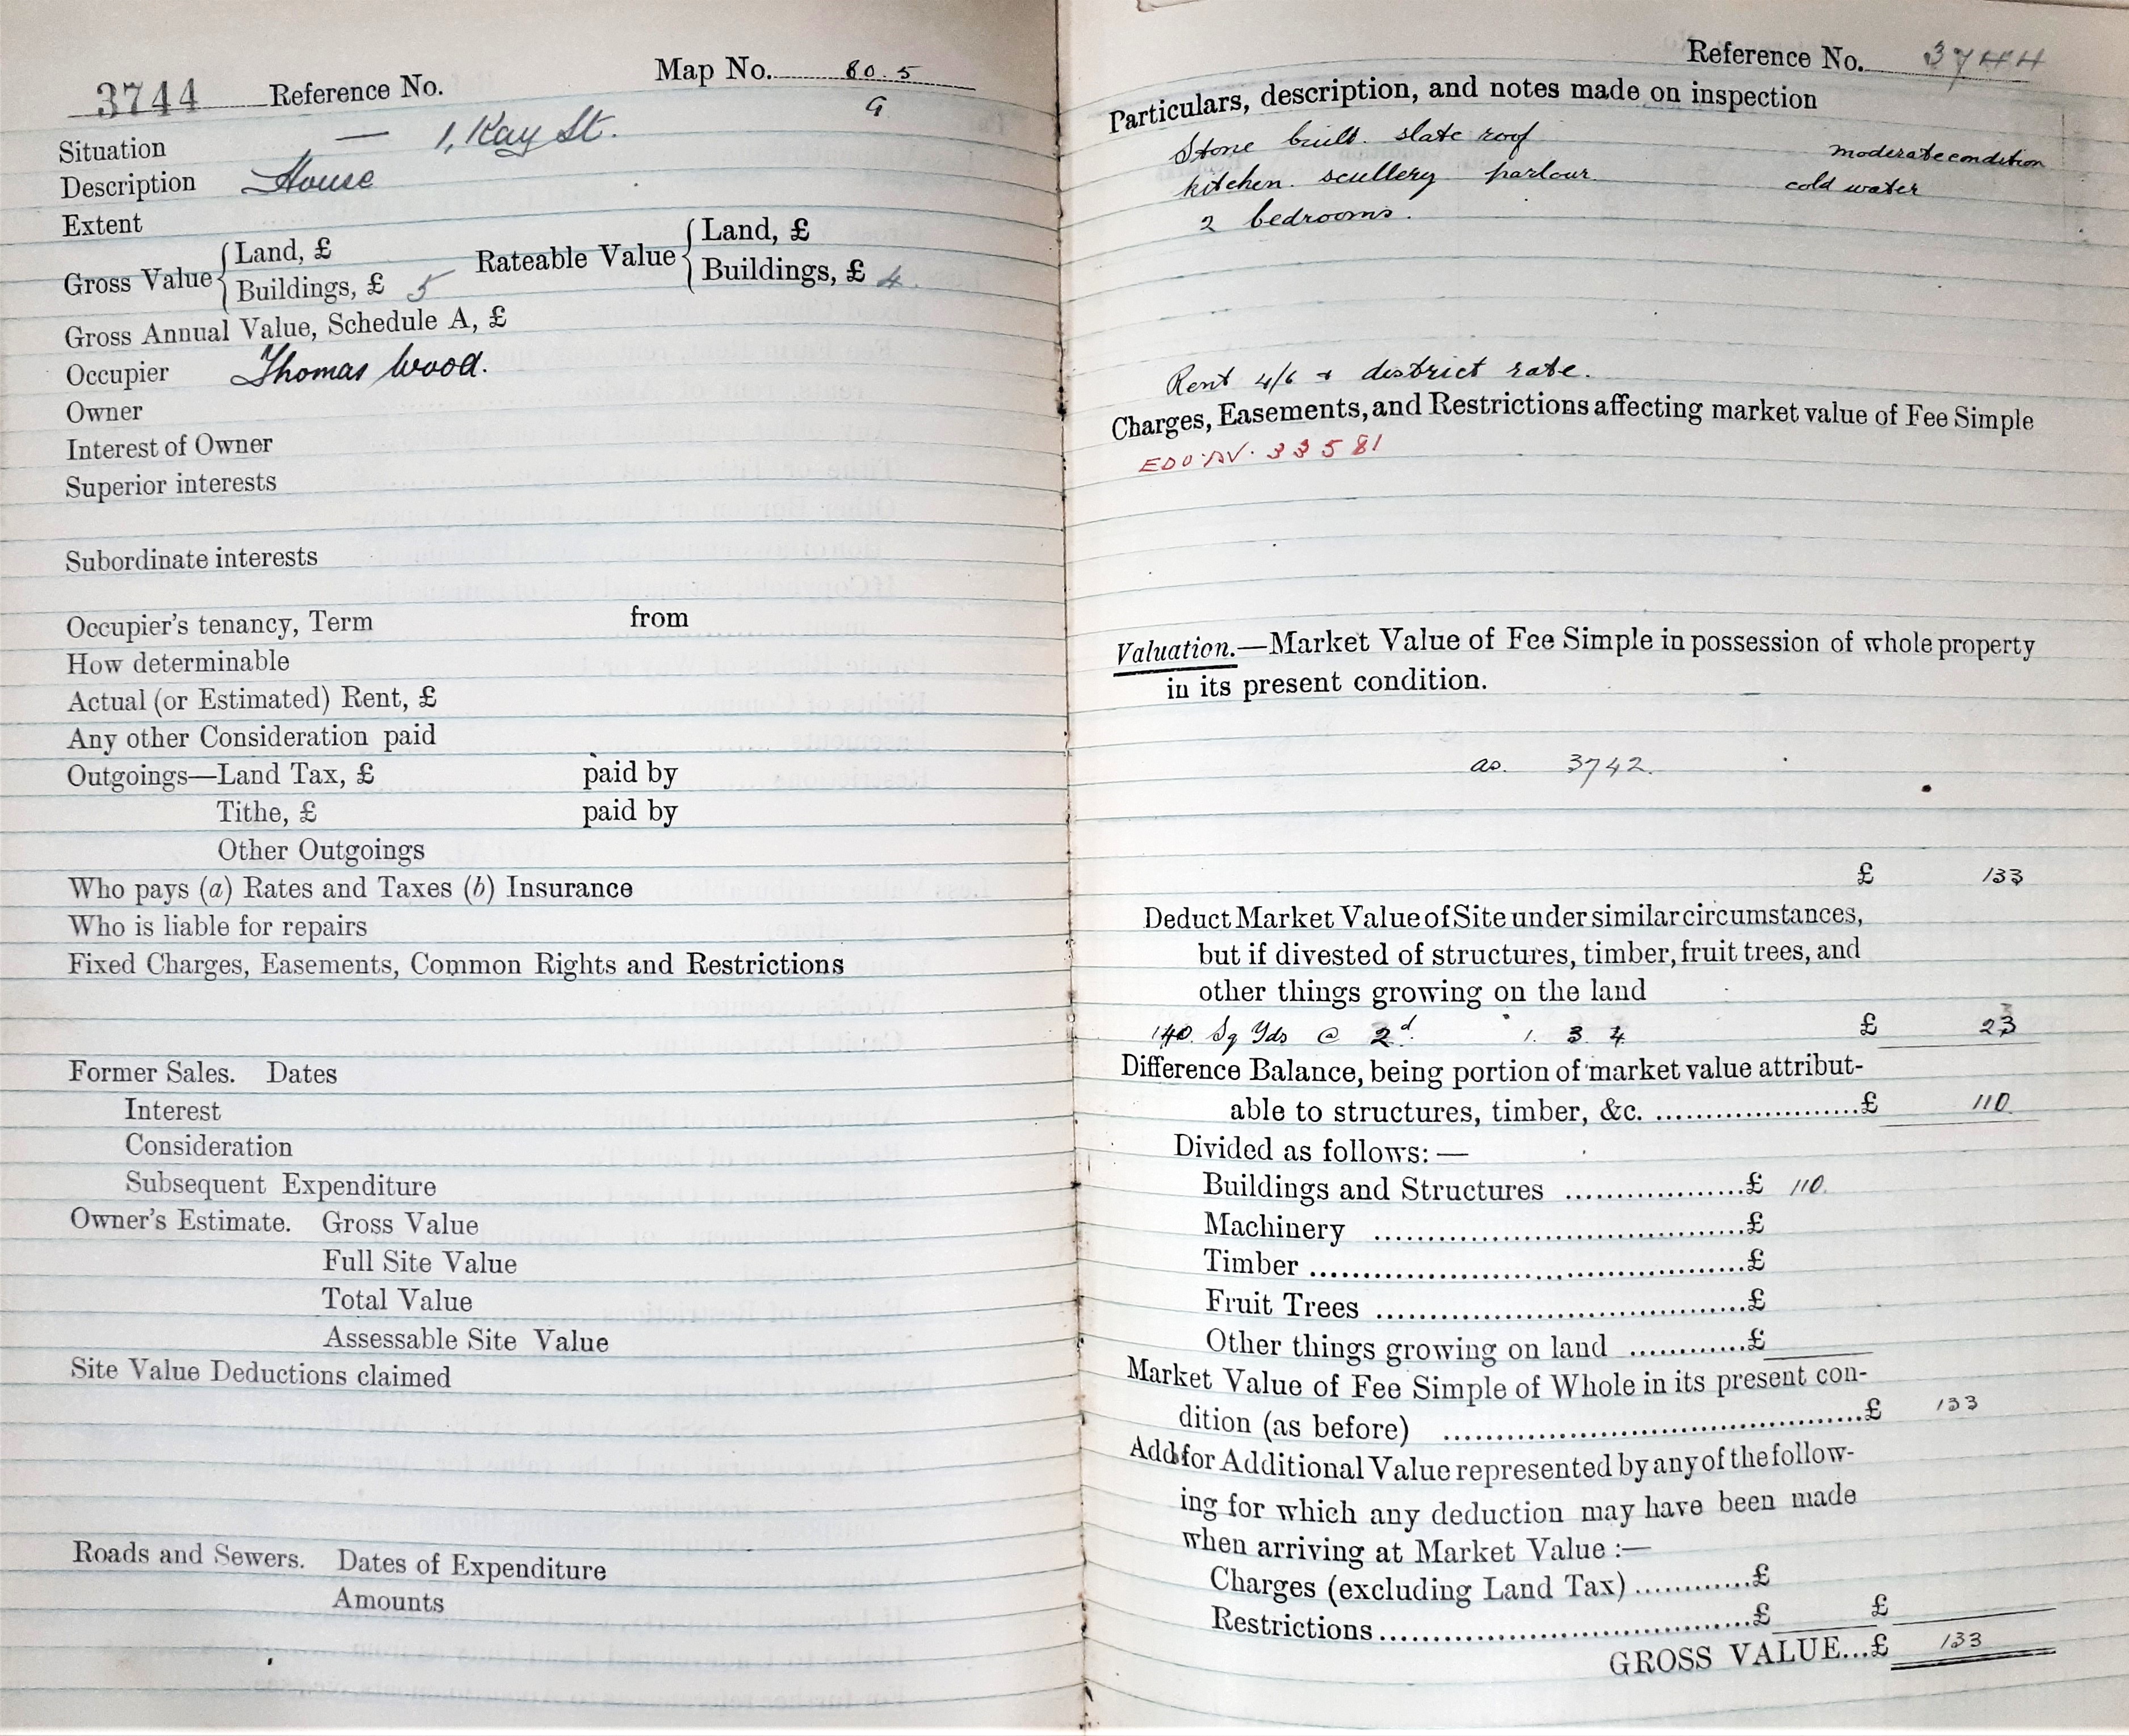 3744 Reference No. Map No. 80.5
9
Situation — 1, Kay St.
Description House
Extent
Gross Value { Land, £
Buildings, £ 5
Rateable Value { Land, £
Buildings, £ 4.
Gross Annual Value, Schedule A, £
Occupier Thomas Wood.
Owner
Interest of Owner
Superior interests
Subordinate interests
Occupier's tenancy, Term from
How determinable
Actual (or Estimated) Rent, £
Any other Consideration paid
Outgoings—Land Tax, £ paid by
Tithe, £ paid by
Other Outgoings
Who pays (a) Rates and Taxes (b) Insurance
Who is liable for repairs
Fixed Charges, Easements, Common Rights and Restrictions
Former Sales. Dates
Interest
Consideration
Subsequent Expenditure
Owner's Estimate. Gross Value
Full Site Value
Total Value
Assessable Site Value
Site Value Deductions claimed
Roads and Sewers. Dates of Expenditure
Amounts
Reference No. 3744
Particulars, description, and notes made on inspection
Stone built. slate roof moderate condition
kitchen. scullery parlour cold water
2 bedrooms.
Rent 4/6 + district rate.
Charges, Easements, and Restrictions affecting market value of Fee Simple
33581
Valuation.—Market Value of Fee Simple in possession of whole property
in its present condition.
as. 3742.
£ 133
Deduct Market Value of Site under similar circumstances,
but if divested of structures, timber, fruit trees, and
other things growing on the land
140. Sq Yds @ 2d. 1. 3. 4 £ 23
Difference Balance, being portion of market value attribut-
able to structures, timber, &c. ....................£ 110
Divided as follows:—
Buildings and Structures ..................£ 110.
Machinery ..............................£
Timber ....................................£
Fruit Trees ..............................£
Other things growing on land ............£
Market Value of Fee Simple of Whole in its present con-
dition (as before) ..............................£ 133
Add for Additional Value represented by any of the follow-
ing for which any deduction may have been made
when arriving at Market Value :—
Charges (excluding Land Tax) ............£
Restrictions ..............................£ £
GROSS VALUE...£ 133